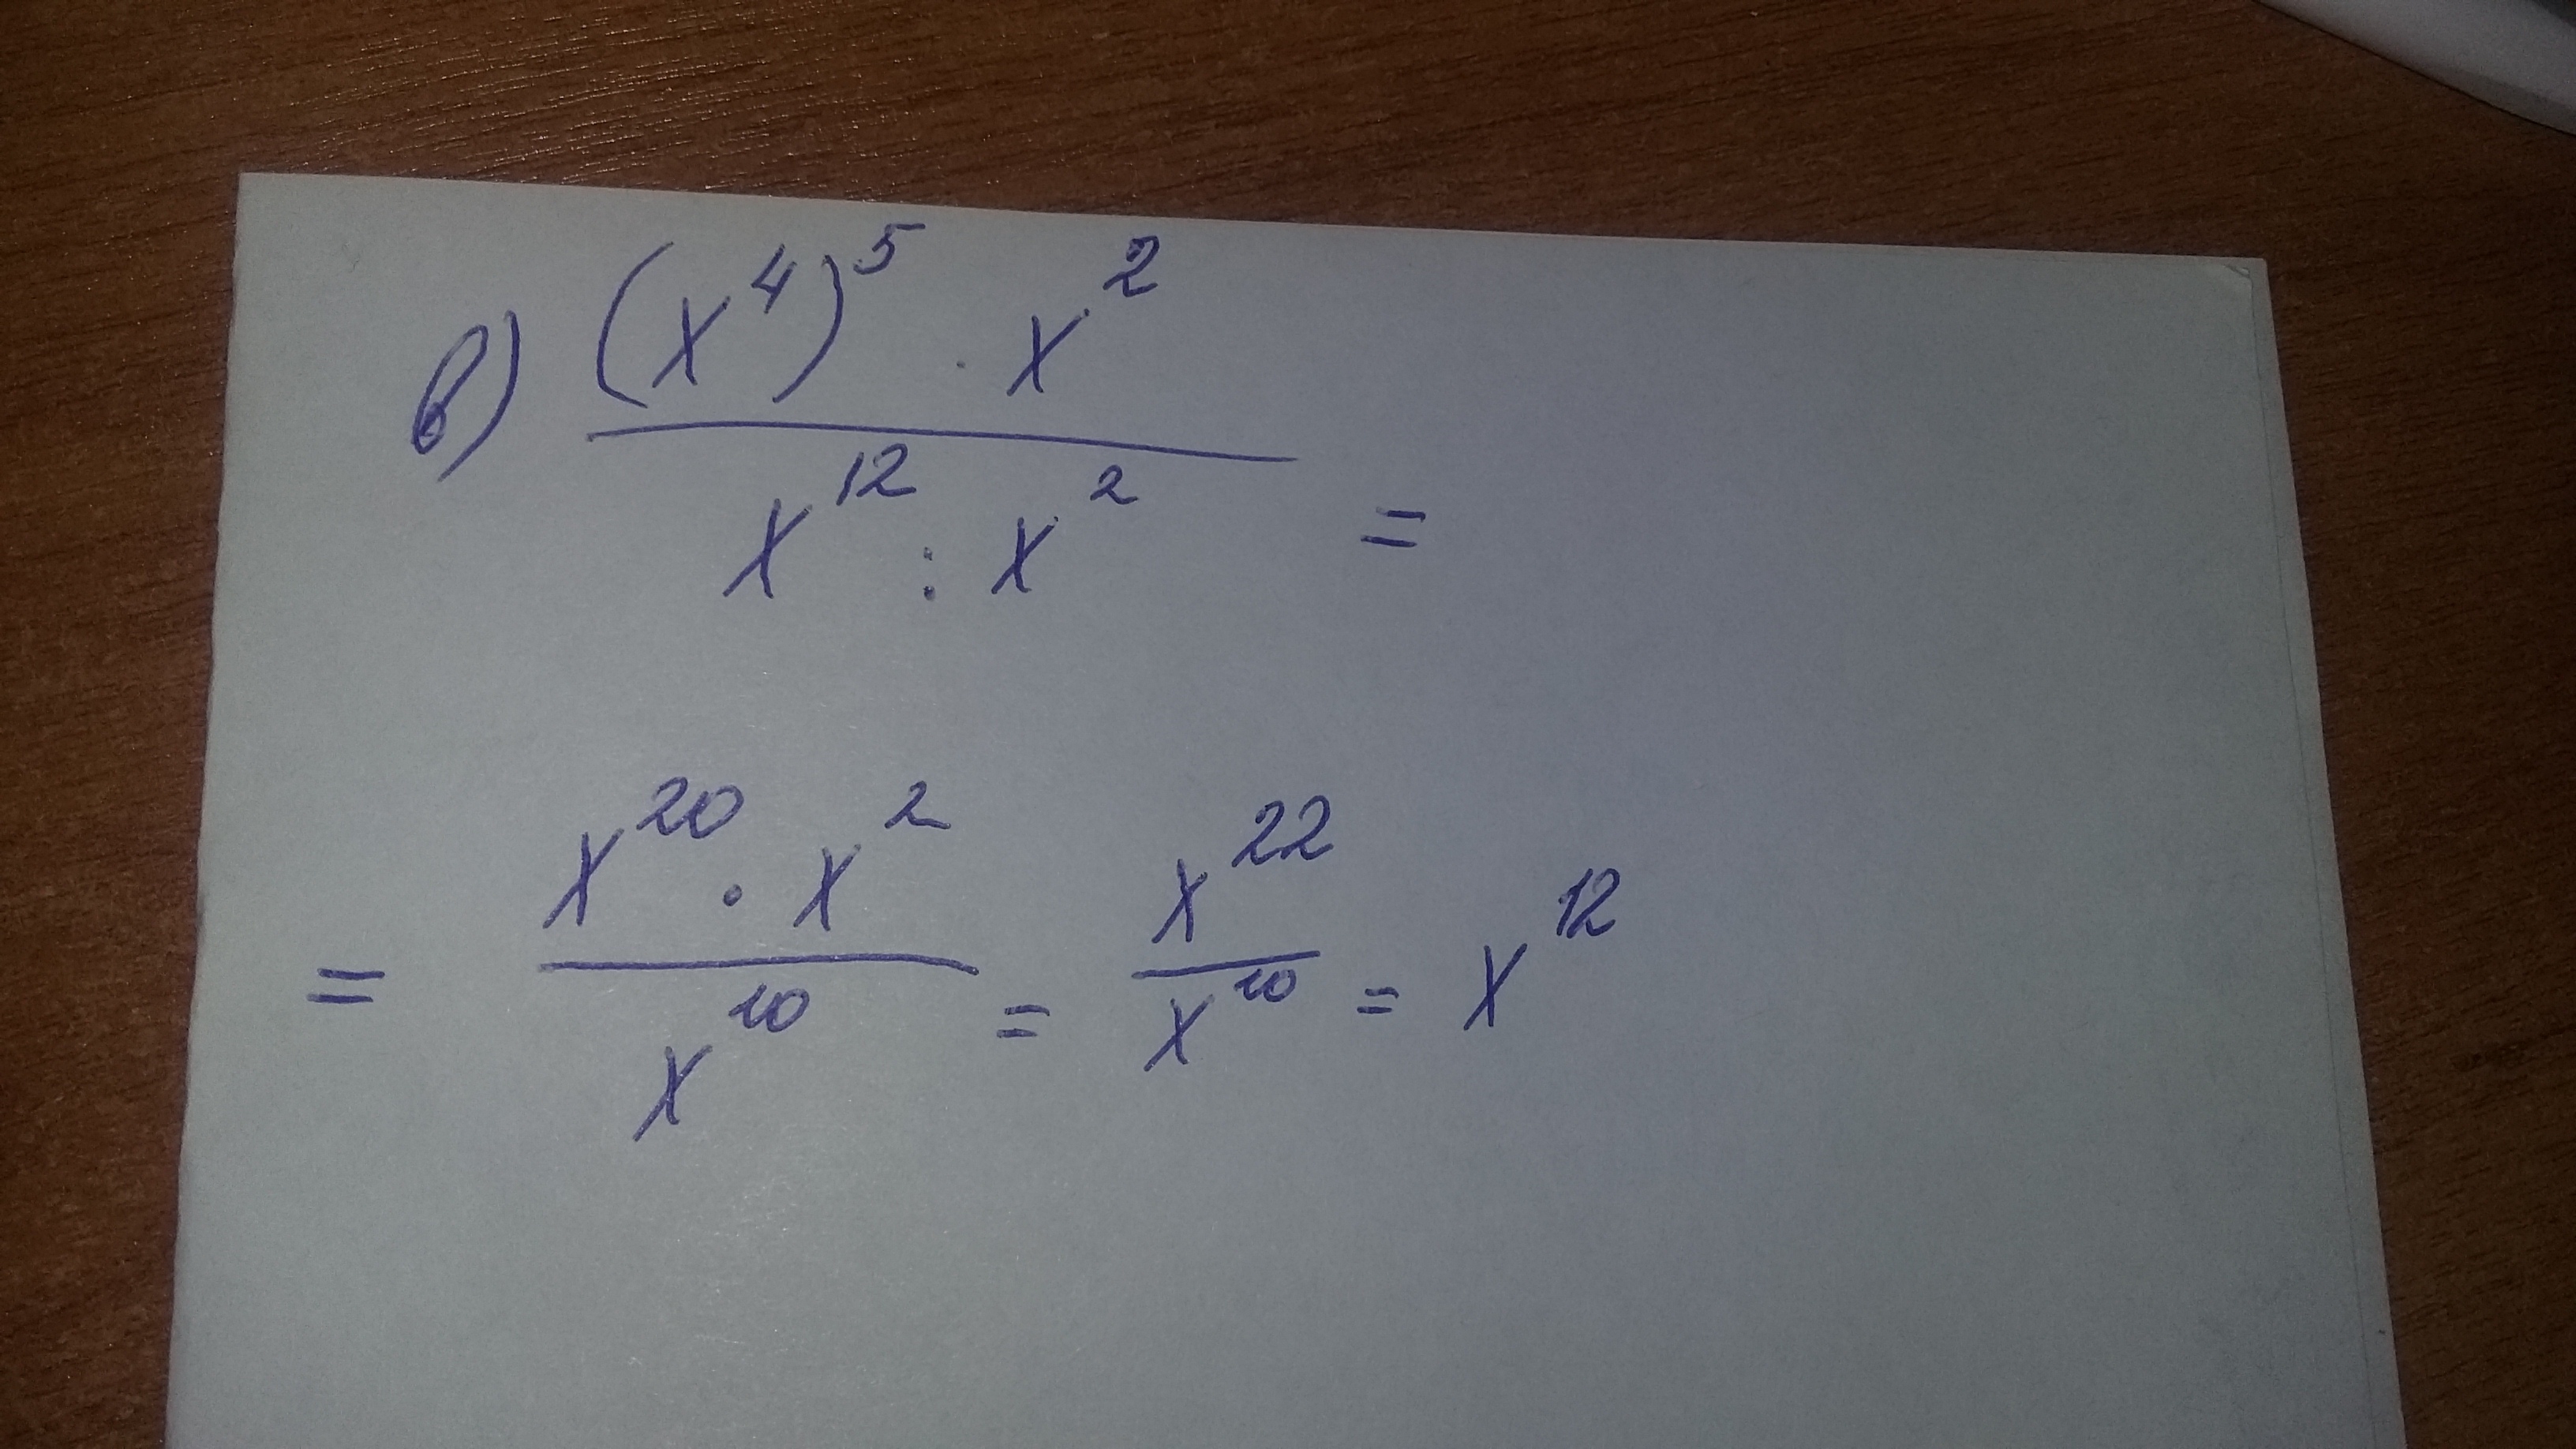 в) (x⁴)⁵ · x²
x¹² : x² =
= x²⁰ · x² / x¹⁰ = x²² / x¹⁰ = x¹²